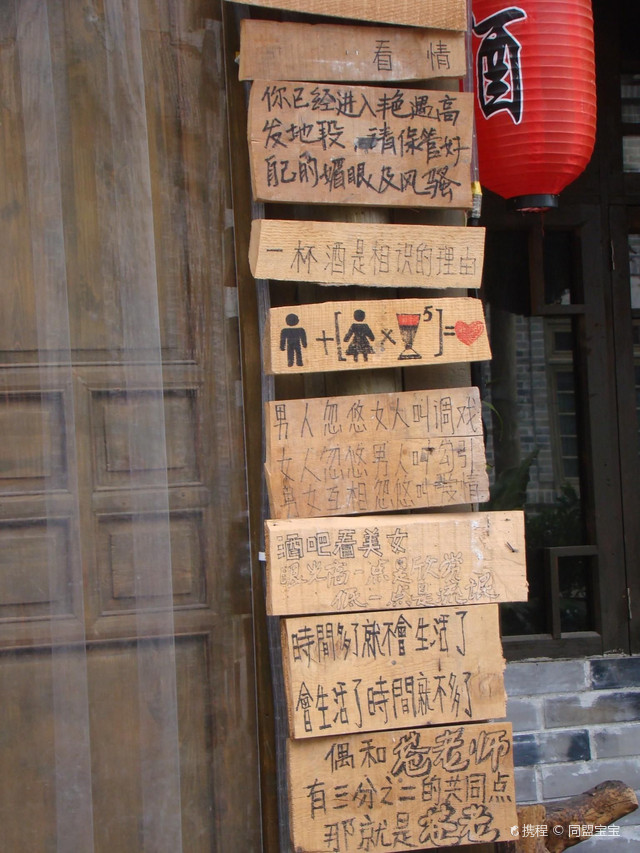 酒
看 情
你已经进入艳遇高
发地段,请保管好
自己的媚眼及风骚
一杯酒是相识的理由
+[ × 5]=
男人忽悠女人叫调戏
女人忽悠男人叫勾引
男女互相忽悠叫爱情
酒吧看美女
眼光高一点是欣赏
低一点是流氓
時間够了就不會生活了
會生活了時間就不够了
偶和苍老师
有三分之二的共同点
那就是苍老
携程 © 同盟宝宝